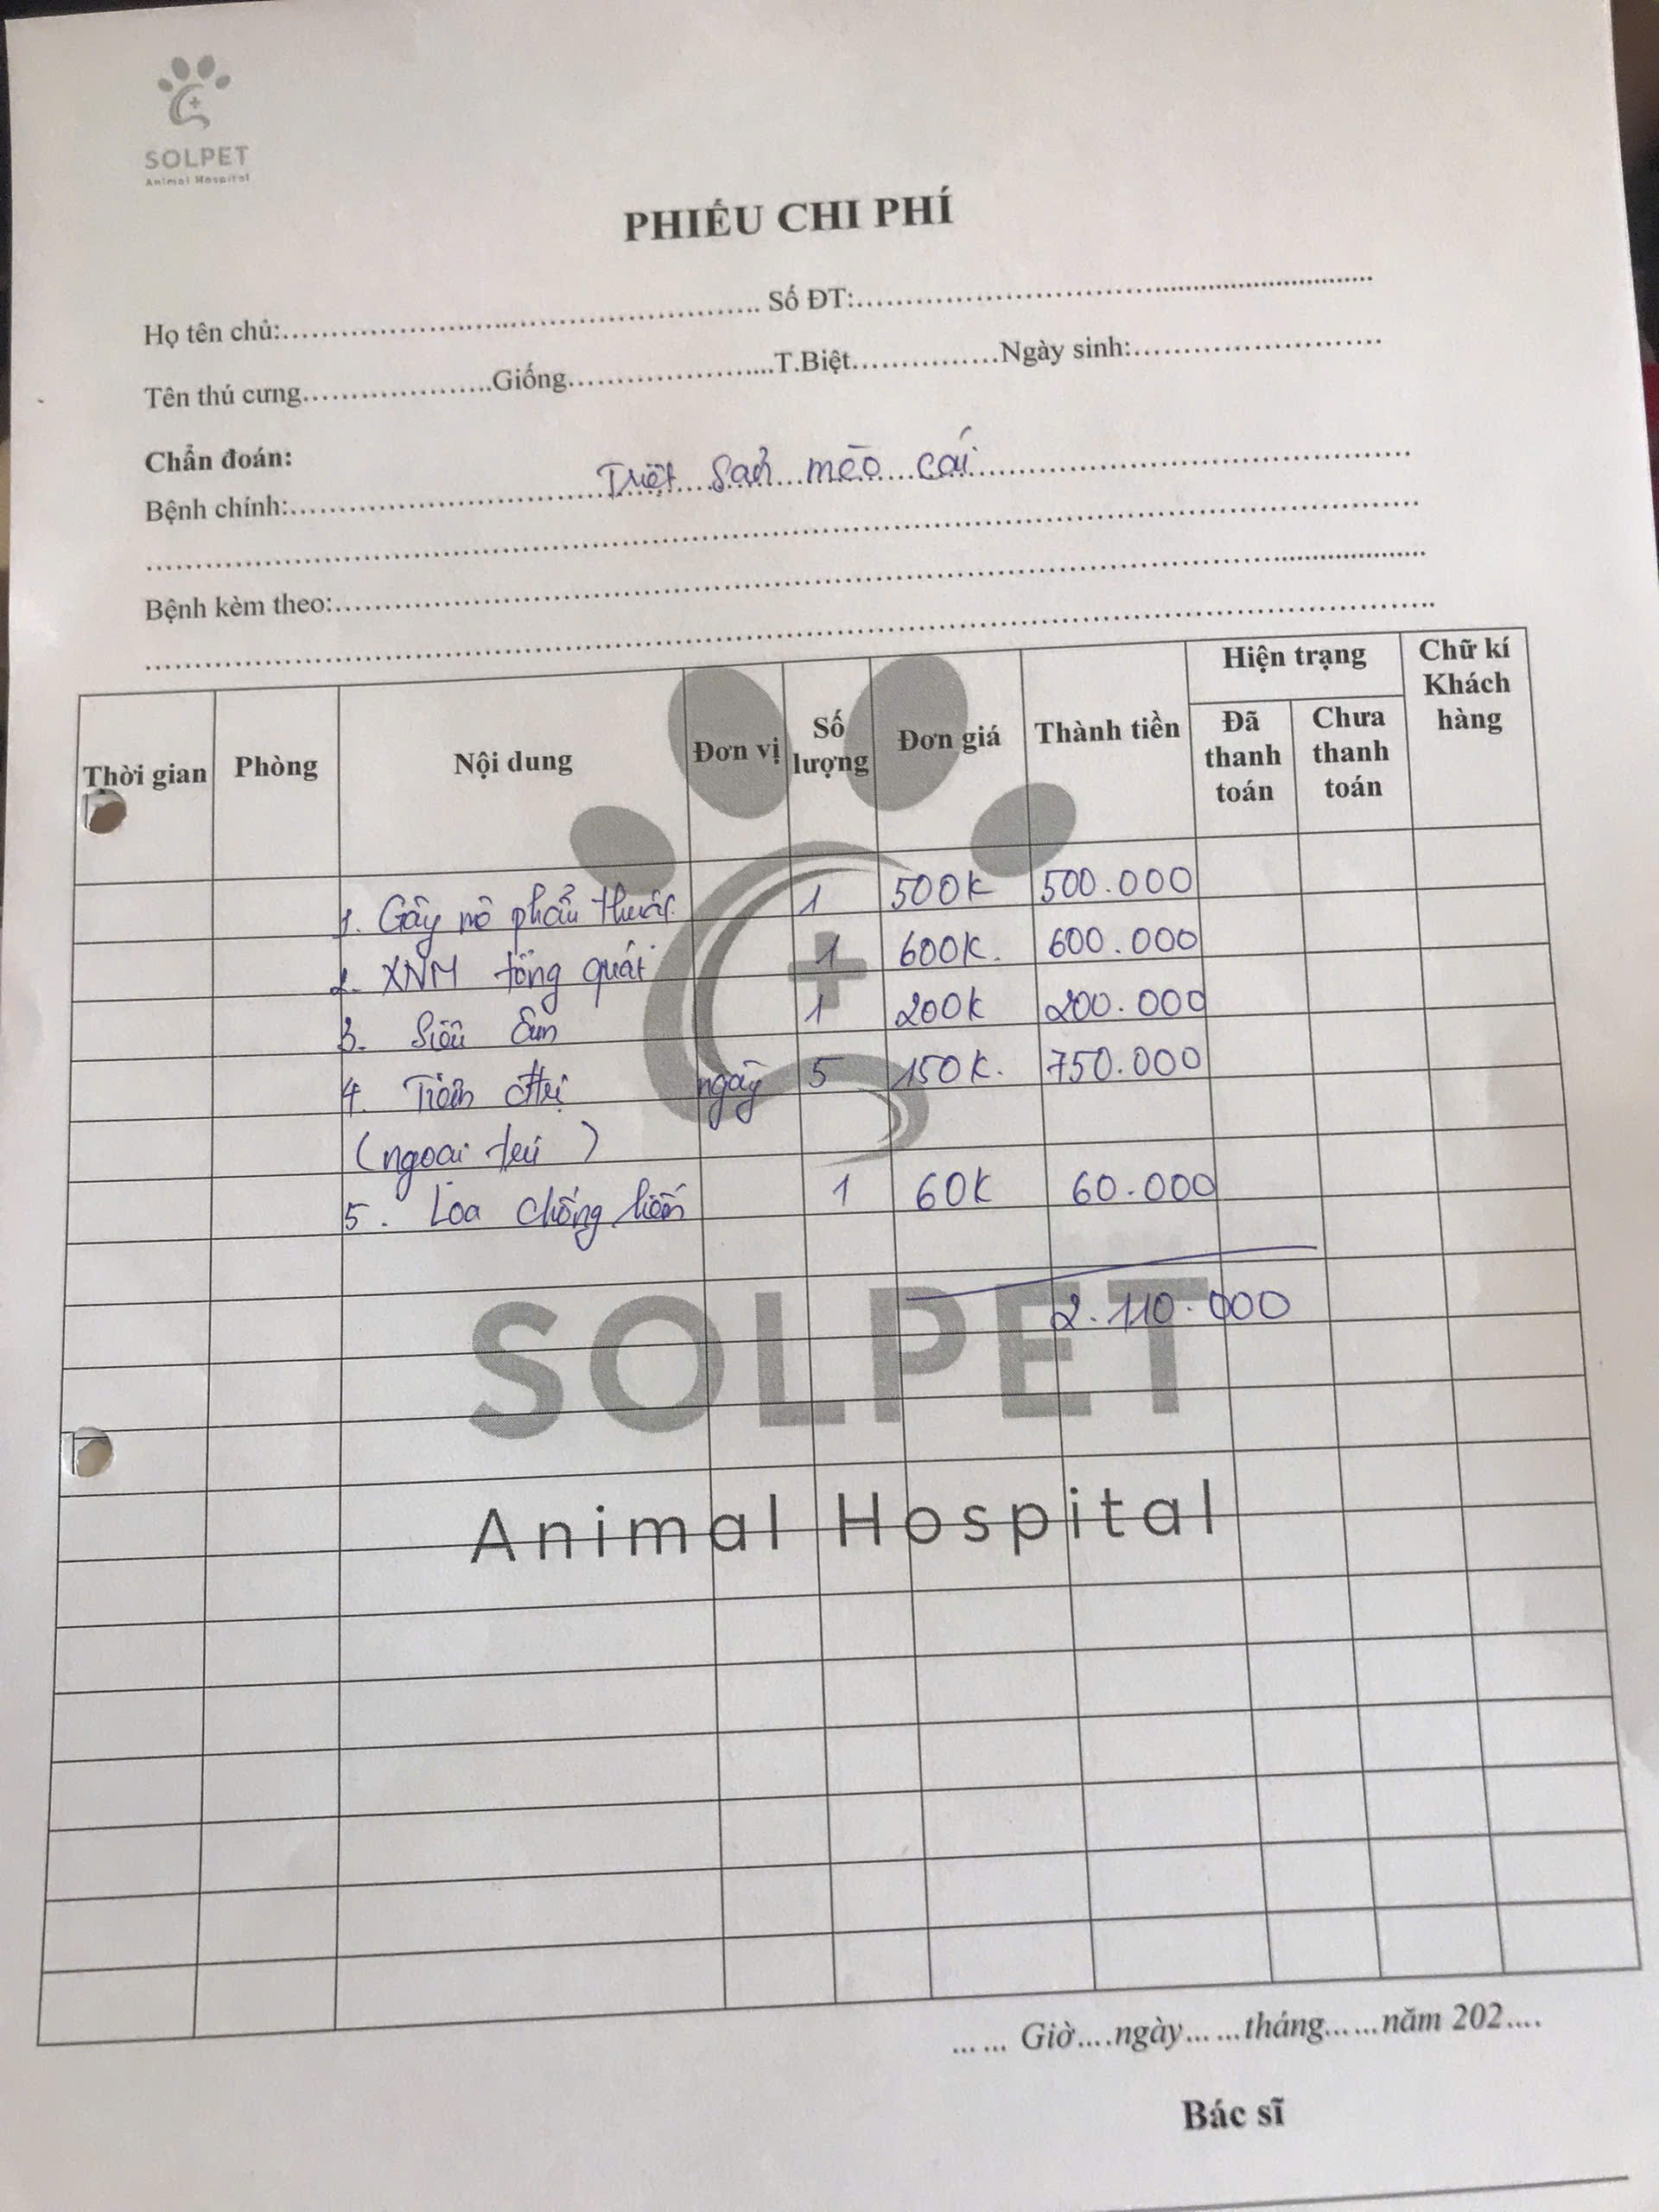 SOLPET
Animal Hospital
PHIẾU CHI PHÍ
Họ tên chủ:........................................................ Số ĐT:........................................................
Tên thú cưng......................Giống......................T.Biệt...............Ngày sinh:..........................
Chẩn đoán:
Bệnh chính:................Triệt sản mèo cái................
Bệnh kèm theo:................................................
Thời gian Phòng Nội dung Đơn vị Số lượng Đơn giá Thành tiền Hiện trạng Đã thanh toán Chưa thanh toán Chữ kí Khách hàng
1. Gây mê phẩu thuật 1 500K 500.000
2. XNM tổng quát 1 600K. 600.000
3. Siêu âm 1 200K 200.000
4. Tiêm đtrị ngày 5 150K. 750.000
(ngoại trú)
5. Loa chống liếm 1 60K 60.000
2.110.000
SOLPET
Animal Hospital
...... Giờ....ngày......tháng......năm 202....
Bác sĩ